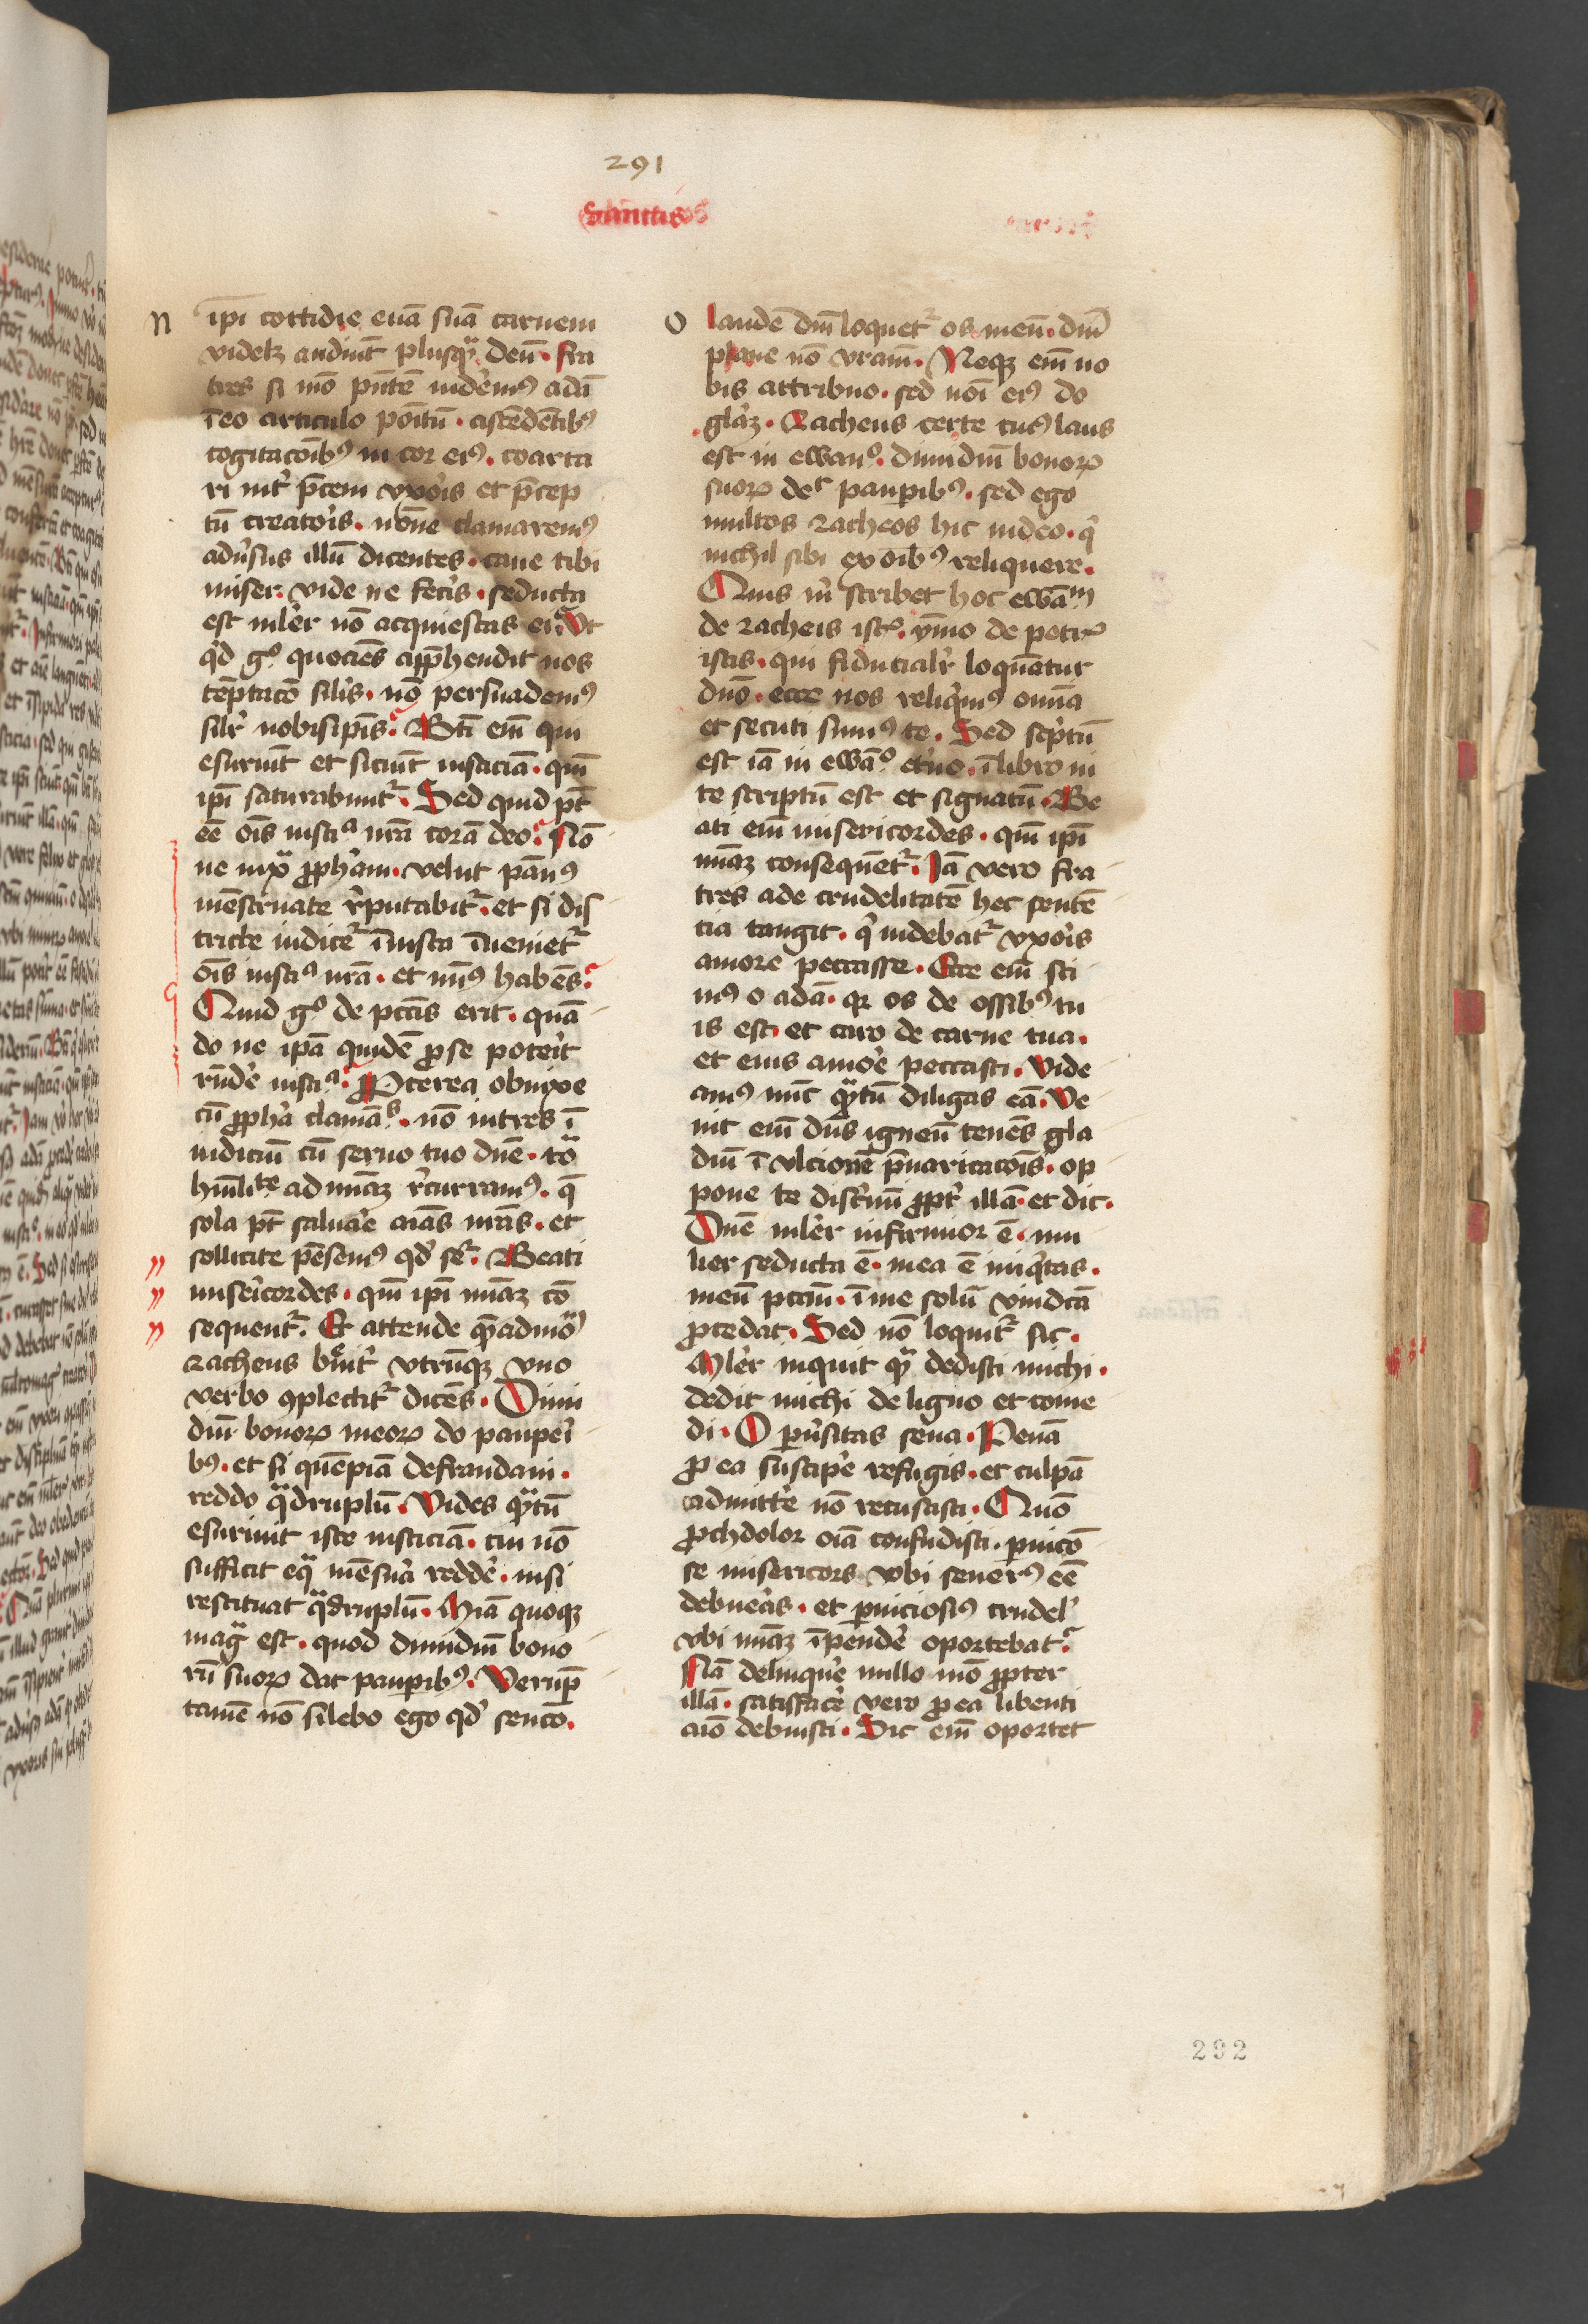 291
Sanctis
n
ipi cottidie euā suā carnem
videlꝫ audiūt plusqᷓ deū. fra
tres si mō pn̄tē uidem᷒ adā
ī eo articulo poītū. ascēdētib᷒
cogitacōib᷒ in cor ei᷒. coarta
ri int̉ p̄cem vxoīs et p̄cep
tū creatoīs. nōne clamarem᷒
adūsus illū dicentes. caue tibi
miser. vide ne fecīs. seducta
est mlier nō acquiescas ei. Vt
qd̉ gͦ quociēs app̄hendit nos
tēptacō silīs. nō persuadem᷒
silr̉ nobisip̄is. Bt̄i em̄ qui
esuriūt et siciūt iusticiā. qm̄
ip̄i saturabunt᷑. Sed quid pt̄
eē oīs iusticᵃ nr̄a corā deo. Nō
ne iuxᷓ ꝓph̉am. velut pān᷒
mēstruate r̉putabit᷑. et si dis
tricte iudicet᷑ īiusta īueniet᷑
oīs iusticᵃ nr̄a. et min᷒ habēs.
Quid gͦ de pctīs erit. quā
do ne ipā quidē ꝓ se poterit
rūde̓ iusticᵃ. Propterea obnixe
cū ꝓph̉a clamāᵗˢ. nō intres ī
iudiciū cū seruo tuo dn̄e. tō
hūilitᵗᵉ ad miāꝫ r̉curram᷒. q̄
sola pt̄ saluare̓ aīas nr̄as. et
sollicite pēsem᷒ qd̓ seᷓ. Beati
misericordes. qm̄ ip̄i miāꝫ cō
sequent᷑. Et attende quēadmoᷓ
zacheus breuit̉ vtrūqꝫ vno
verbo ꝯplectit᷑ dicēs. Dimi
diū bonoꝝ meoꝝ do paupeī
b᷒. et si quēpiā defraudaui.
reddo qᷓdruplū. Vides qᷓtū
esuriuit iste iusticiā. cui nō
sufficit eqᷓ mēsura redde̓. nisi
restituat qᷓdruplū. Miā quoqꝫ
magᷓ est. quod dimidiū bono
rū suoꝝ dat paupib᷒. Verūp̄
tamē nō silebo ego qd̓ sencō.
o
laudē dn̄i loquet᷑ os meū. dn̄i
plane nō vr̄am. Neqꝫ em̄ uo
bis attribuo. sed nōi ei᷒ do
glāꝫ. Zacheus certe cui᷒ laus
est in ewanᵒ. dimidiū bonoꝝ
suoꝝ deᵗ paupib᷒. sed ego
multos zacheos hic uideo. qͥ
nichil sibi ex oīb᷒ reliquere.
Quis m̉ scribet hoc ewāᵐ
de zacheis istꝭ. ymo de petrꝭ
istis. qui fiducialr̉ loquātur
dn̄o. ecce nos reliqͥm᷒ omīa
et secuti sum᷒ te. Sed sc̉ptū
est iā in ewāᵒ et̉no. ī libro ui
te scriptū est et signatū. Be
ati em̄ misericordes. qm̄ ip̄i
miāꝫ consequēt᷑. Iā vero fra
tres ade crudelitatē hec sentē
tia tangit. qͥ uidebat᷑ vxoīs
amore peccasse. Ecce em̄ sci
m᷒ o adā. qꝛ os de ossib᷒ tu
is est. et caro de carne tua.
et eius amore̓ peccasti. Vide
am᷒ nūc qᷓtū diligas eā. Ve
nit em̄ dn̄s igneū tenēs gla
diū ī vlcionē p̄uaricacoīs. op
pone te discͥmī ꝓpt̉ illā. et dic.
Dn̄e mlier infirmior ē. mu
lier seducta ē. mea ē iniqͥtas.
meū pctm̄. ī me solū vindcā
ꝓcedat. Sed nō loquit᷑ sic.
Mlier inquit qᷓ dedisti michi.
dedit michi de ligno et come
di. O ꝑūsitas seua. Penā
ꝓ ea suscipe̓ refugis. et culpā
admitte̓ nō recusasti. Quō
ꝓchdolor oīa confudisti. ꝑnicō
se misericors vbi seuer᷒ eē
debueras. et ꝑniciosi᷒ crudel̓
vbi miāꝫ īpende̓ oportebat.
Nā delinqͥre nullo mō ꝓpter
illā. satisface̓ vero ꝓ ea libenti
aīo debuisti. Sic em̄ oportet
292